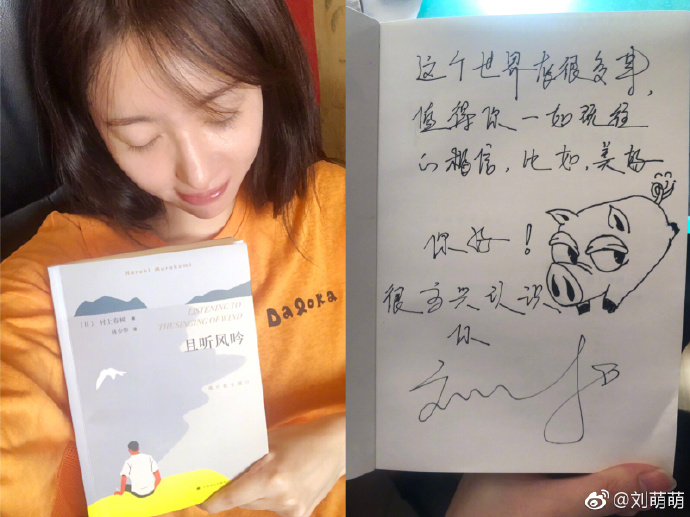 Haruki Murakami
LISTENING TO
THE SINGING OF WIND
[日] 村上春树 著
林少华 译
且听风吟
Dagoka
这个世界有很多事,
值得你一如既往
的相信,比如,美好
你好!
很高兴认识
你
@刘萌萌